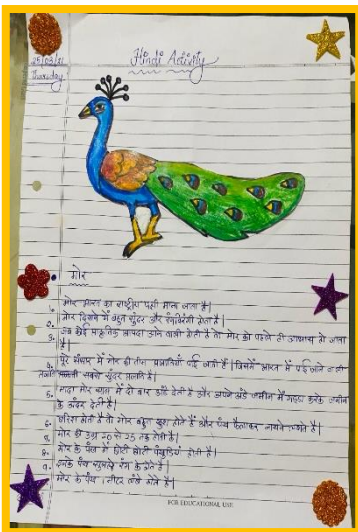 25/03/21
Thursday
Hindi Activity
मोर
1. मोर भारत का राष्ट्रीय पक्षी माना जाता है।
2. मोर दिखने में बहुत सुंदर और रंगबिरंगी होता है।
3. जब कोई प्राकृतिक आपदा आने वाली होती है तो मोर को पहले ही आभास हो जाता
है।
4. पूरे संसार में मोर की तीन प्रजातियाँ पाई जाती हैं। जिसमें भारत में पाई जाने वाली
सबसे सुंदर प्रजाति है।
5. मादा मोर साल में दो बार अंडे देती है और अपने अंडे जमीन में गड्ढा करके जमीन
के अंदर देती है।
6. बारिश होती है तो मोर बहुत खुश होते हैं और पंख फैलाकर नाचने लगते हैं।
7. मोर की उम्र 20 से 25 तक होती है।
8. मोर के पंख में छोटी छोटी पंखुड़ियां होती हैं।
9. इनके पंख रंग के होते हैं।
मोर के पंख 1 मीटर लंबे होते हैं।
FOR EDUCATIONAL USE